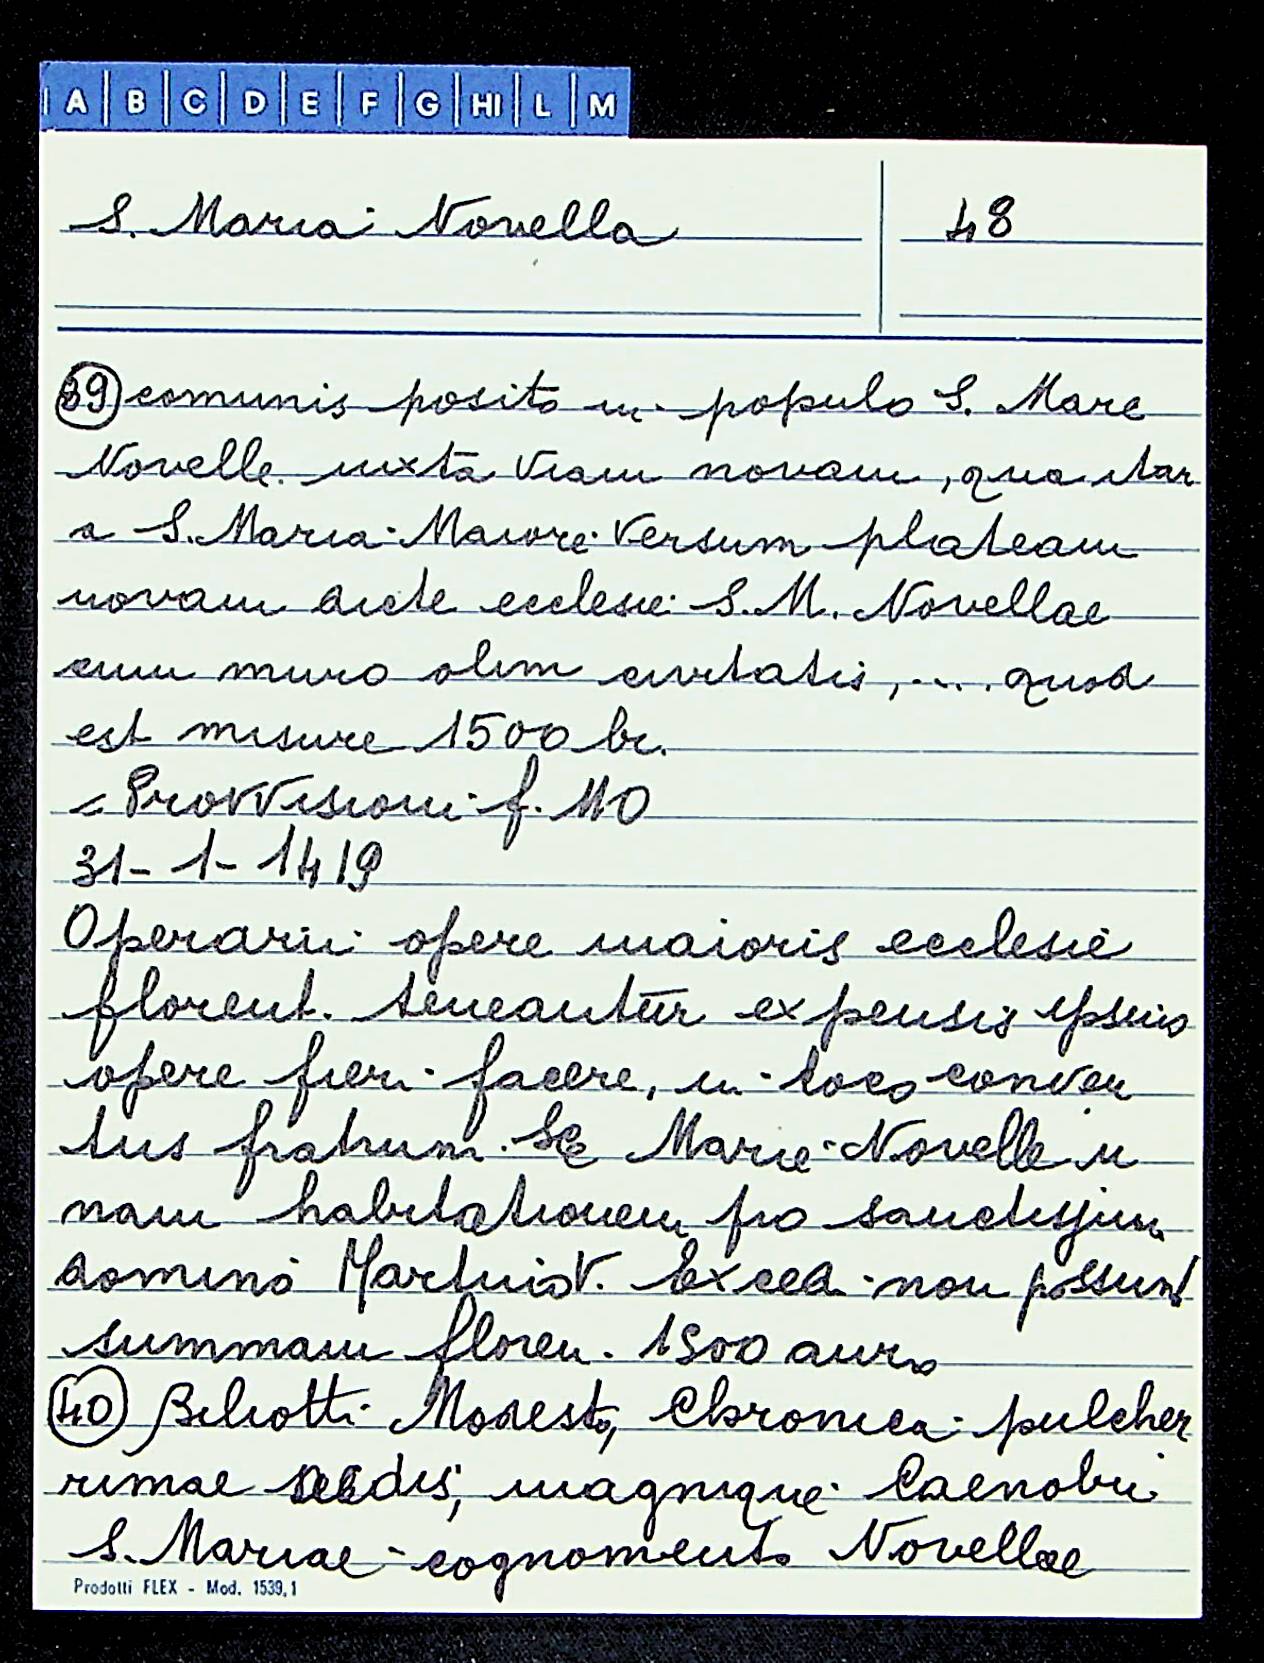 A B C D E F G HI L M
S. Maria Novella 48
39 comunis posito in populo S. Marie
Novelle iuxta viam novam, qua itar
a S. Maria Maiore versum plateam
novam dicte ecclesie S. M. Novellae
cum muro olim civitatis, .... quod
est misure 1500 br.
= Provvisioni f. 110
31-1-1419
Operarii opere maioris ecclesie
florent. teneantur expensis ipsius
opere fieri facere, in loco conven
tus fratrum Se Marie Novelle u
nam habitationem pro sanctissim
domino Martino V. Exced. non possunt
summam floren. 1500 auro
40 Biliotti Modesto, Chronica pulcher
rimae aedis, magnique Caenobii
S. Mariae cognomento Novellae
Prodotti FLEX - Mod. 1539,1